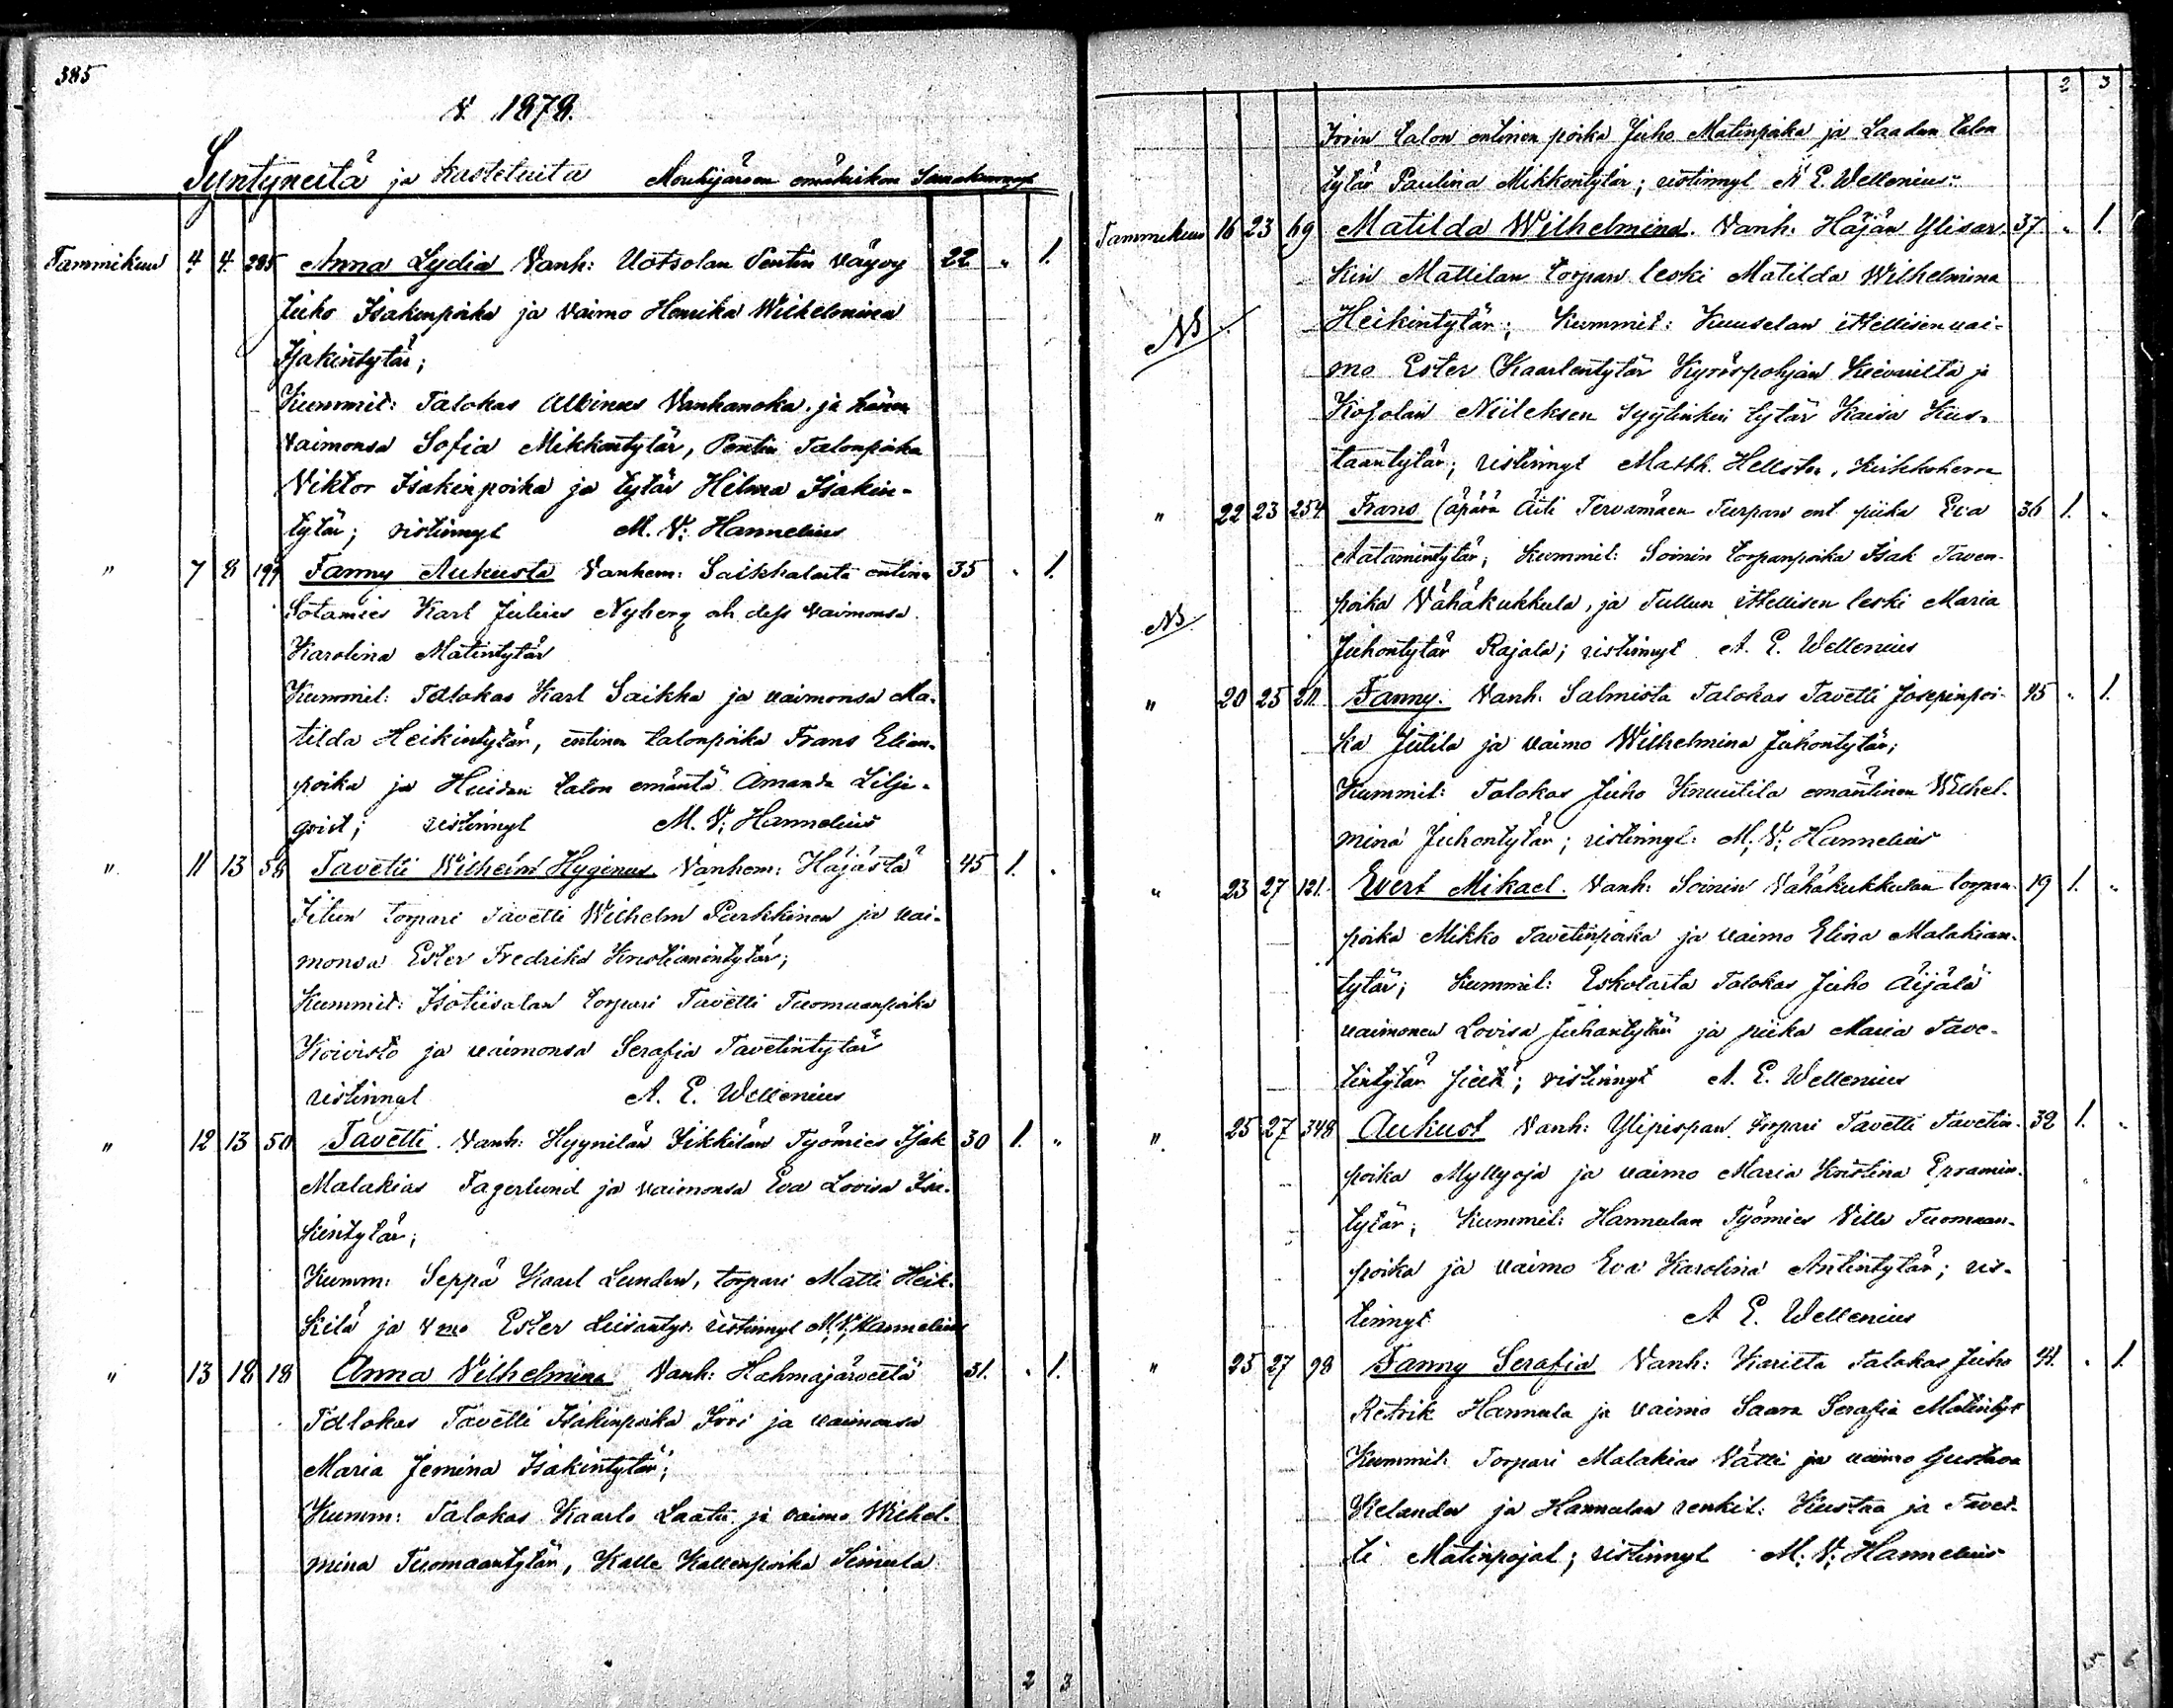 385
V. 1878.
Syntyneitä ja kastetuita Mouhijärven emäkirkon Seurakunnasa
Tammikuu 4 4 285 Anna Lydia Vanh: Uotsolan Pentin vävy 22 „ 1.
Juho Isakinpoika ja vaimo Henrika Wilhelmina
Isakintytär;
Kummit: Talokas Albinus Vanhanoka, ja hänen
vaimonsa Sofia Mikkontytär, Pentin Talonpoika
Viktor Isakinpoika ja tytär Hilma Isakin-
tytär; ristinnyt M. V. Hannelius
" 7 8 199 Fanny Aukusta Vanhem: Saikkalasta entinen 35 „ 1.
Sotamies Karl Julius Nyberg och dess vaimonsa
Karolina Matintytär
Kummit: Talokas Karl Saikka ja vaimonsa Ma-
tilda Heikintytär, entinen talonpoika Frans Elian-
poika ja Huidan talon emäntä Amanda Lilje-
qvist; ristinnyt M. V. Hannelius
" 11 13 58 Tavetti Wilhelm Hyginus Vanhem: Häjästä 45 1. „
Jitun torpari Tavetti Wilhelm Purkkinen ja vai-
monsa Ester Fredrika Kristianintytär;
Kummit: Isotiisalan torpari Tavetti Tuomaanpoika
Koivisto ja vaimonsa Serafia Tavetintytär
ristinnyt A. E. Wellenius
" 12 13 50 Tavetti. Vanh: Hyynilän Jikkilän Työmies Isak 30 1. „
Malakias Fagerlund ja vaimonsa Eva Lovisa Isa-
kintytär;
Kumm: Seppä Kaarl Lunden, torpari Matti Heik-
kilä ja vmo Ester Liisantyt. ristinnyt M. V. Hannelius
" 13 18 18 Anna Vilhelmina Vanh: Hahmajärveltä 31. „ 1.
Talokas Tavetti Isakinpoika Jori ja vaimonsa
Maria Jemina Isakintytär;
Kumm: Talokas Kaarlo Laatu ja vaimo Wilhel-
mina Tuomaantytär, Kalle Kallenpoika Simula
2 3
2 3
Jorin talon entinen poika Juho Matinpoika ja Laadun talon
tytär Paulina Mikkontytär; ristinnyt A E. Wellenius
Tammikuu 16 23 69 Matilda Wilhelmina. Vanh: Häjän Ylisar- 37 „ 1.
kin Mattilan torpan leski Matilda Wilhelmina
NB Heikintytär; Kummit: Kuuselan itsellisen vai-
mo Ester Kaarlentytär Kyröspohjan Kievarilta ja
Kojolan Niileksen Syytinkin tytär Kaisa Kus-
taantytär; ristinnyt Matth. Hellsten, Kirkkoherra
" 22 23 254 Frans (äpärä Äiti Tervamäen Turpan ent. piika Eva 36 1. „
Aatamintytär; Kummit: Soinin torpanpoika Isak Taven-
NB poika Vähäkukkula, ja Tullun itsellisen leski Maria
Juhontytär Rajala; ristinnyt A. E. Wellenius
" 20 25 211. Fanny. Vanh: Salmista Talokas Tavetti Josepinpoi- 45 „ 1.
ka Jutila ja vaimo Wilhelmina Juhontytär;
Kummit: Talokas Juho Knuutila emäntinen Wilhel-
mina Juhontytär; ristinnyt: M. V. Hannelius
" 23 27 121. Evert Mikael. Vanh: Soinin Vähäkukkulan torpan- 19 1. „
poika Mikko Tavetinpoika ja vaimo Elina Malakian-
tytär; Kummit: Eskolasta Talokas Juho Äijälä
vaimonen Lovisa Juhantytär ja piika Maria Tave-
tintytär; ristinnyt A. E. Wellenius
" 25 27 348 Aukust Vanh: Ylipispan Torpari Tavetti Tavetin- 32 1. „
poika Myllyoja ja vaimo Maria Kristina Eroamin-
tytär; Kummit: Hannulan Työmies Ville Tuomaan-
poika ja vaimo Eva Karolina Antintytär; ris-
tinnyt A E. Wellenius
" 25 27 98 Fanny Serafia Vanh: Karilta Talokas Juho 41. „ 1.
Retrik Hannula ja vaimo Saara Serafia Matintyt
Kummit: Torpari Malakias Vätti ja vaimo Gustava
Kelander ja Hannulan renkit: Kustaa ja Tavet-
ti Matinpojat; ristinnyt M. V. Hannelius
5 6